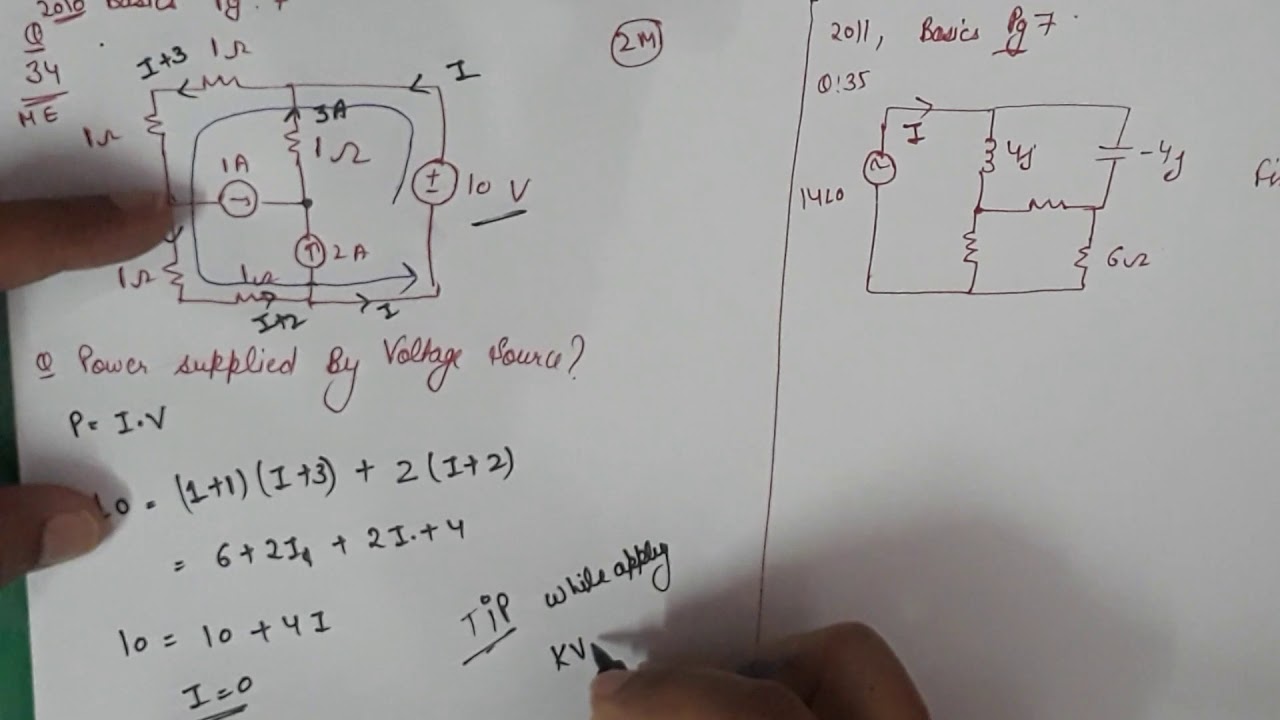 2010 Basics Pg. 7
Q
34
ME
I+3
1Ω
I
2M
1Ω
3A
1Ω
1A
10 V
2A
1Ω
1Ω
I+2
I
Q Power supplied By Voltage Source?
P = I.V
10 = (1+1)(I+3) + 2(I+2)
= 6+2I + 2I.+4
10 = 10 + 4I
I=0
TIP while apply
KV
2011, Basics Pg 7.
Q:35
I
4j
-4j
14∠0
6Ω